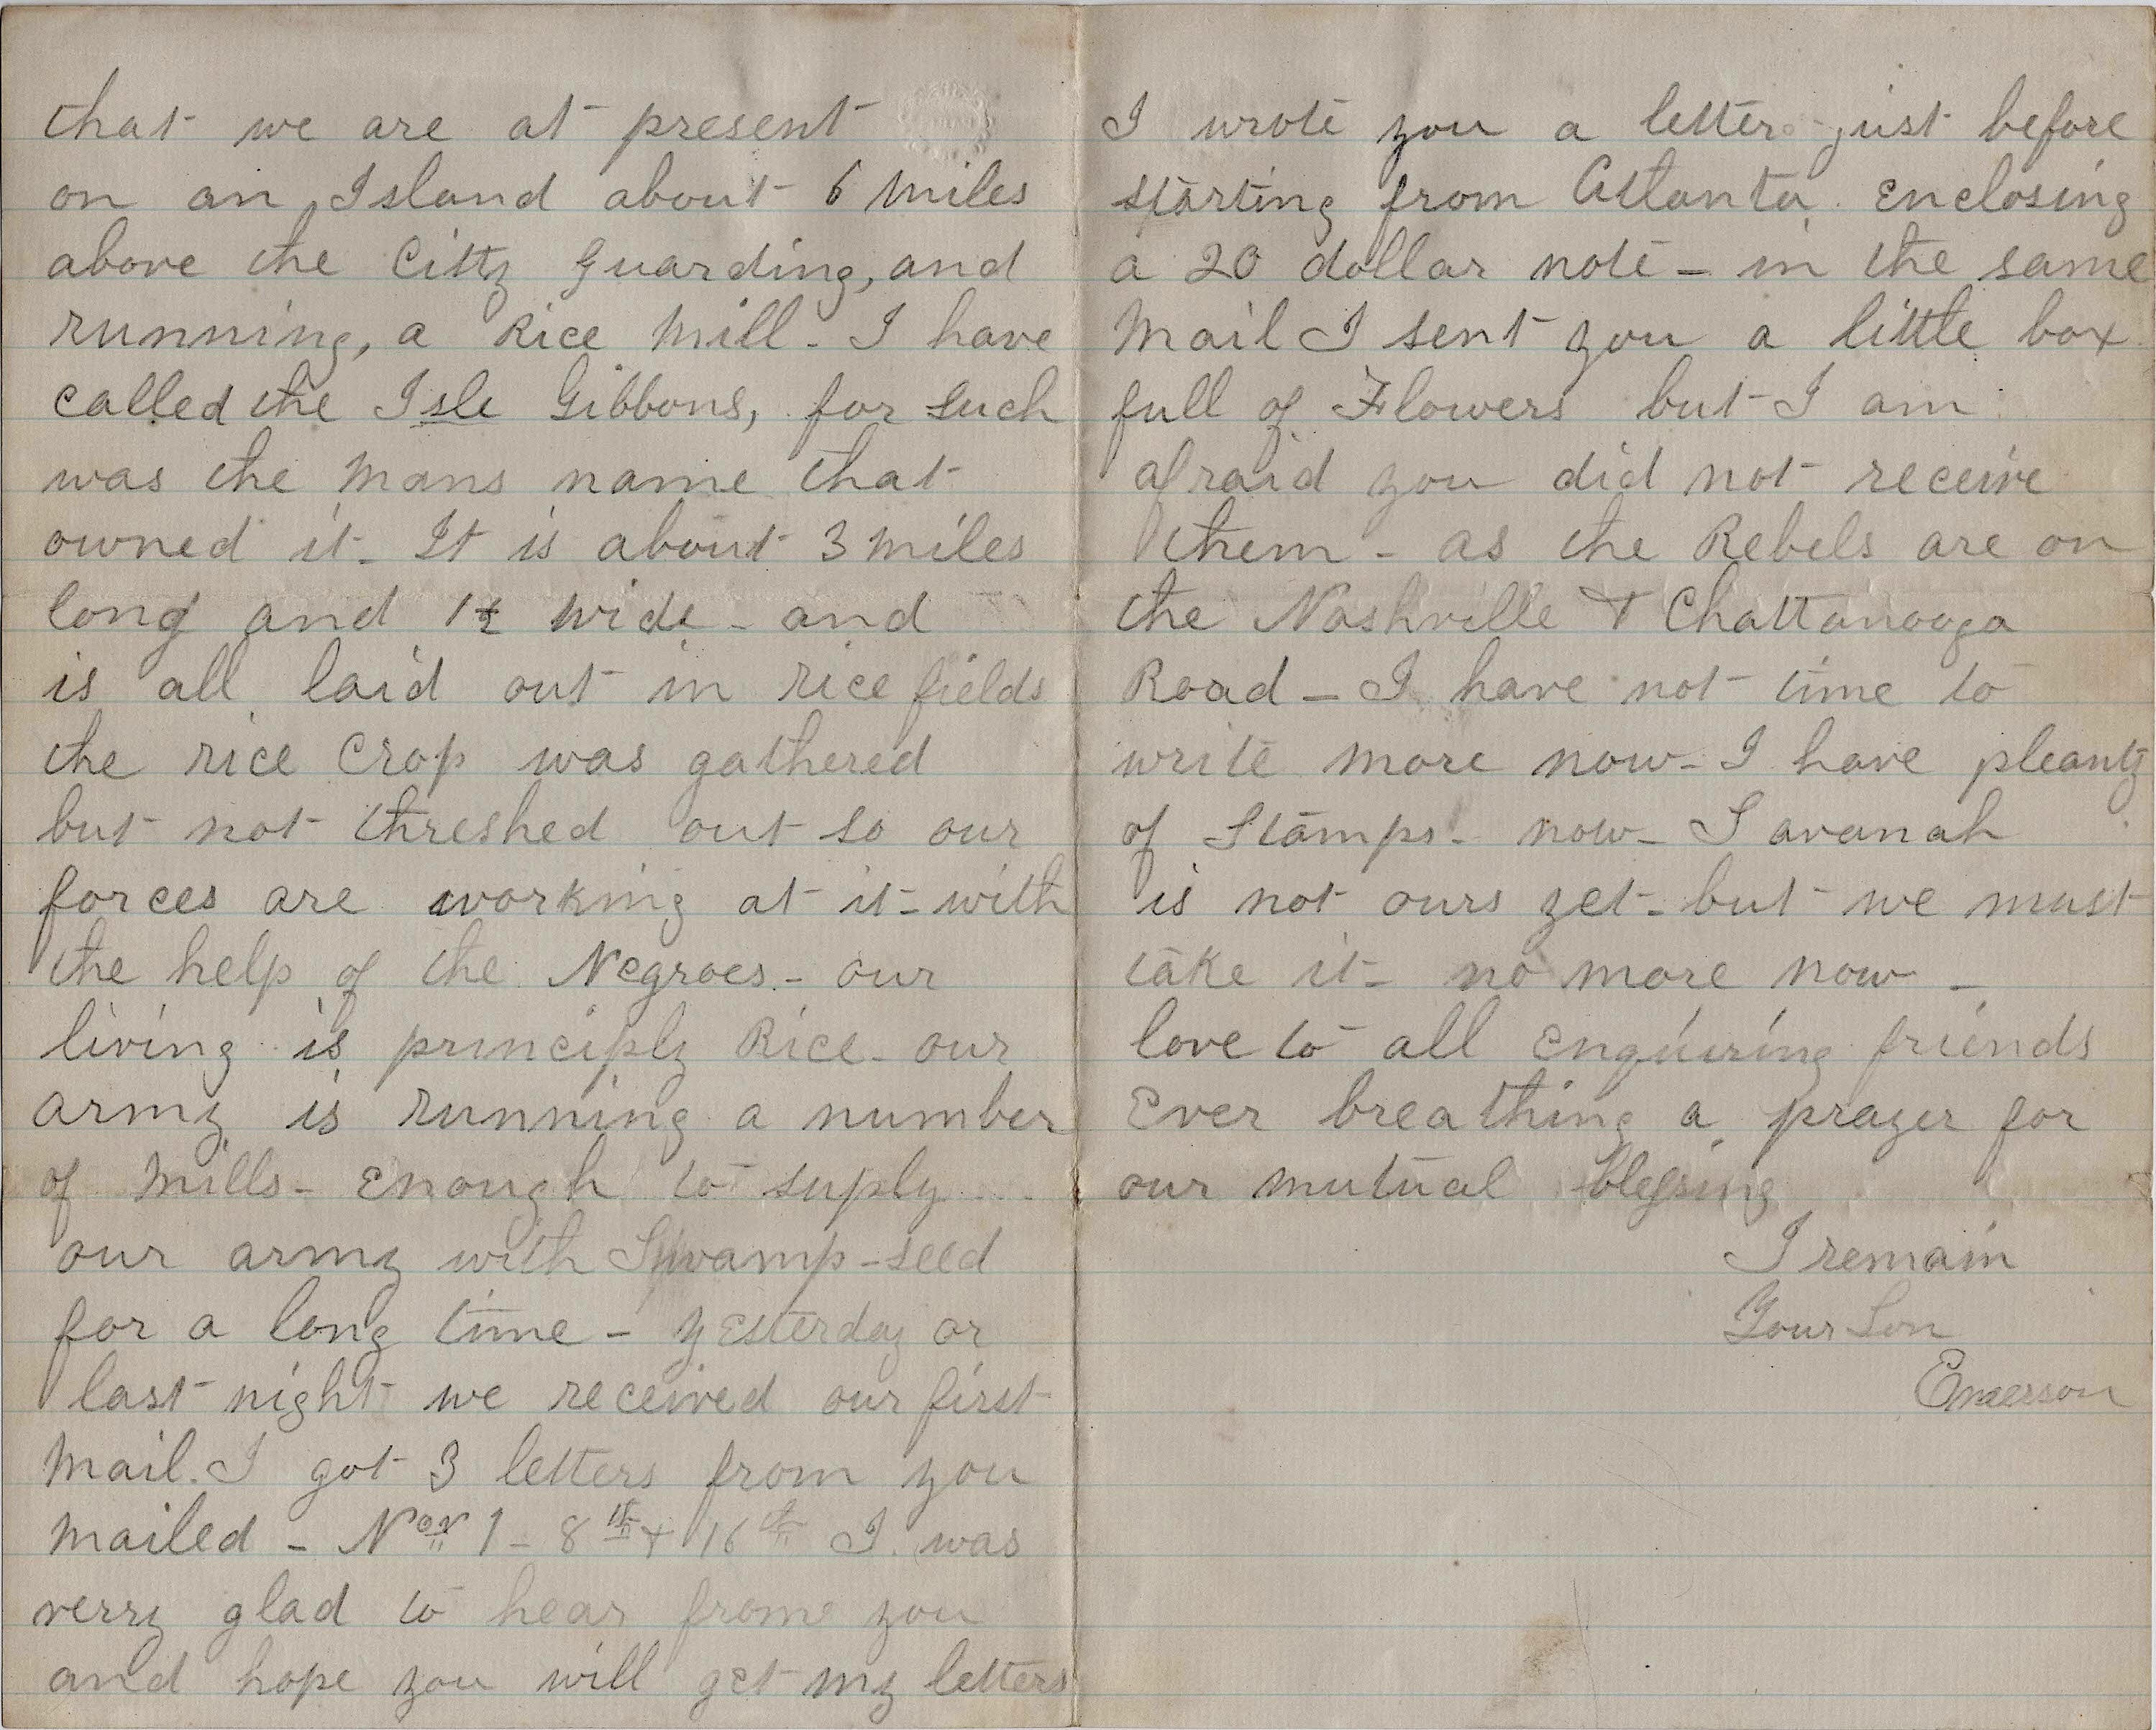 that we are at present
on an Island about 6 miles
above the Citty Guarding, and
running, a Rice Mill - I have
called the Isle Gibbons, for such
was the mans name that
owned it - It is about 3 miles
long and 1½ wide - and
is all laid out in rice fields
the rice Crop was gathered
but not threshed out so our
forces are working at it - with
the help of the Negroes - our
living is principly Rice - our
army is running a number
of Mills - Enough to suply
our army with Swamp-seed
for a long time - yesterday or
last night we received our first
Mail. I got 3 letters from you
Mailed - Nov 1 - 8th + 16th I was
verry glad to hear frome you
and hope you will get my letters
I wrote you a letter just before
starting from Atlanta. Enclosing
a 20 dollar note - in the same
Mail I sent you a little box
full of Flowers but I am
afraid you did not receive
them - as the Rebels are on
the Nashville & Chattanooga
Road - I have not time to
write more now - I have pleanty
of Stamps - now - Savanah
is not ours yet - but we must
take it - no more now -
love to all enquiring friends
Ever breathing a prayer for
our mutual blessing
I remain
Your Son
Emerson